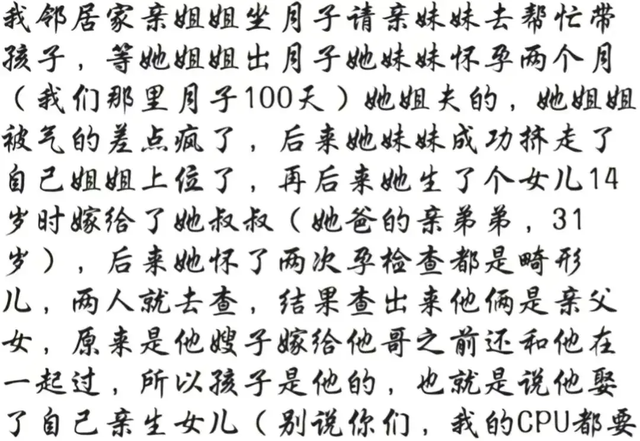 我邻居家亲姐姐坐月子请亲妹妹去帮忙带
孩子，等她姐姐出月子她妹妹怀孕两个月
（我们那里月子100天）她姐夫的，她姐姐
被气的差点疯了，后来她妹妹成功挤走了
自己姐姐上位了，再后来她生了个女儿14
岁时嫁给了她叔叔（她爸的亲弟弟，31
岁），后来她怀了两次孕检查都是畸形
儿，两人就去查，结果查出来他俩是亲父
女，原来是他嫂子嫁给他哥之前还和他在
一起过，所以孩子是他的，也就是说他娶
了自己亲生女儿（别说你们，我的CPU都要